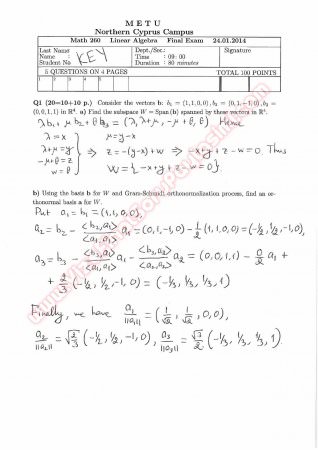 M E T U
Northern Cyprus Campus
Math 260 Linear Algebra Final Exam 24.01.2014
Last Name
Name
Student No
KEY
Dept./Sec.:
Time : 09: 00
Duration : 80 minutes
Signature
5 QUESTIONS ON 4 PAGES
TOTAL 100 POINTS
1 2 3 4 5
Q1 (20=10+10 p.) Consider the vectors b: b₁ = (1,1,0,0), b₂ = (0,1,-1,0), b₃ =
(0,0,1,1) in ℝ⁴. a) Find the subspace W = Span(b) spanned by these vectors in ℝ⁴.
λb₁ + μb₂ + θb₃ = (λ, λ+μ, -μ+θ, θ) Hence
λ = x
λ+μ = y
-μ+θ = z
w = θ
⇒ μ = y-x
z = -(y-x)+w ⇒ -x+y+z-w=0. Thus
W = {-x+y+z-w=0}
b) Using the basis b for W and Gram-Schmidt orthonormalization process, find an or-
thonormal basis a for W.
Put a₁ = b₁ = (1,1,0,0),
a₂ = b₂ - <b₂,a₁>/<a₁,a₁> a₁ = (0,1,-1,0) - 1/2 (1,1,0,0) = (-1/2, 1/2, -1, 0),
a₃ = b₃ - <b₃,a₁>/<a₁,a₁> a₁ - <b₃,a₂>/<a₂,a₂> a₂ = (0,0,1,1) - 0/2 a₁ +
+ 2/3 (-1/2, 1/2, -1, 0) = (-1/3, 1/3, 1/3, 1)
Finally, we have a₁/||a₁|| = (1/√2, 1/√2, 0, 0),
a₂/||a₂|| = √2/√3 (-1/2, 1/2, -1, 0), a₃/||a₃|| = √3/2 (-1/3, 1/3, 1/3, 1).